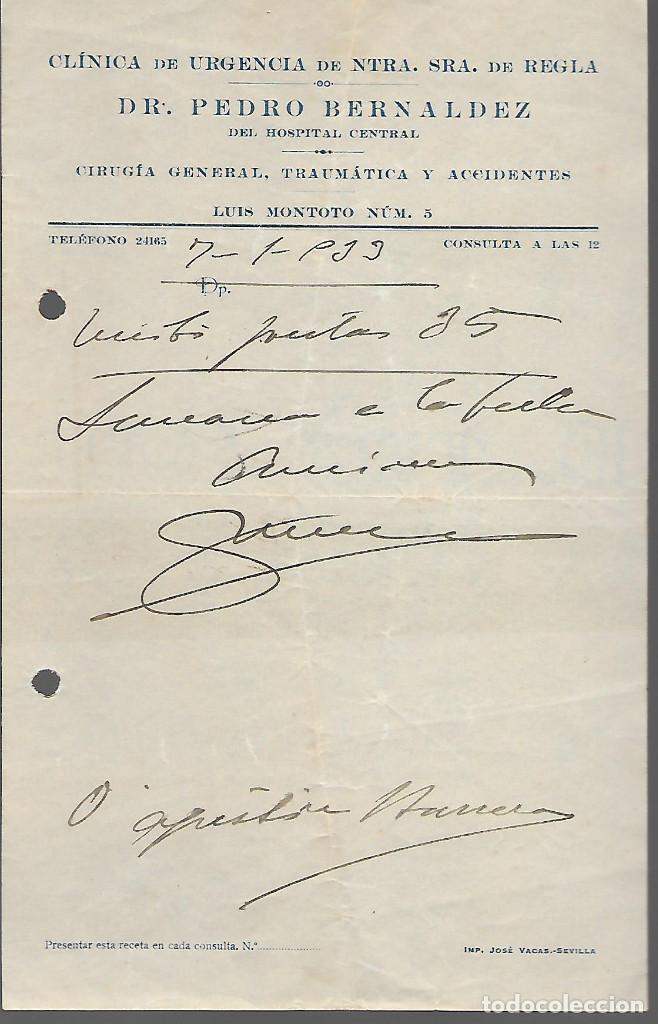 CLÍNICA DE URGENCIA DE NTRA. SRA. DE REGLA
DR. PEDRO BERNALDEZ
DEL HOSPITAL CENTRAL
CIRUGÍA GENERAL, TRAUMÁTICA Y ACCIDENTES
LUIS MONTOTO NÚM. 5
TELÉFONO 24165
CONSULTA A LAS 12
7-1-939
Dp.
Recibí pesetas 35
a la fecha
Herrera
Presentar esta receta en cada consulta. N.º
IMP. JOSÉ VACAS.-SEVILLA
todocoleccion